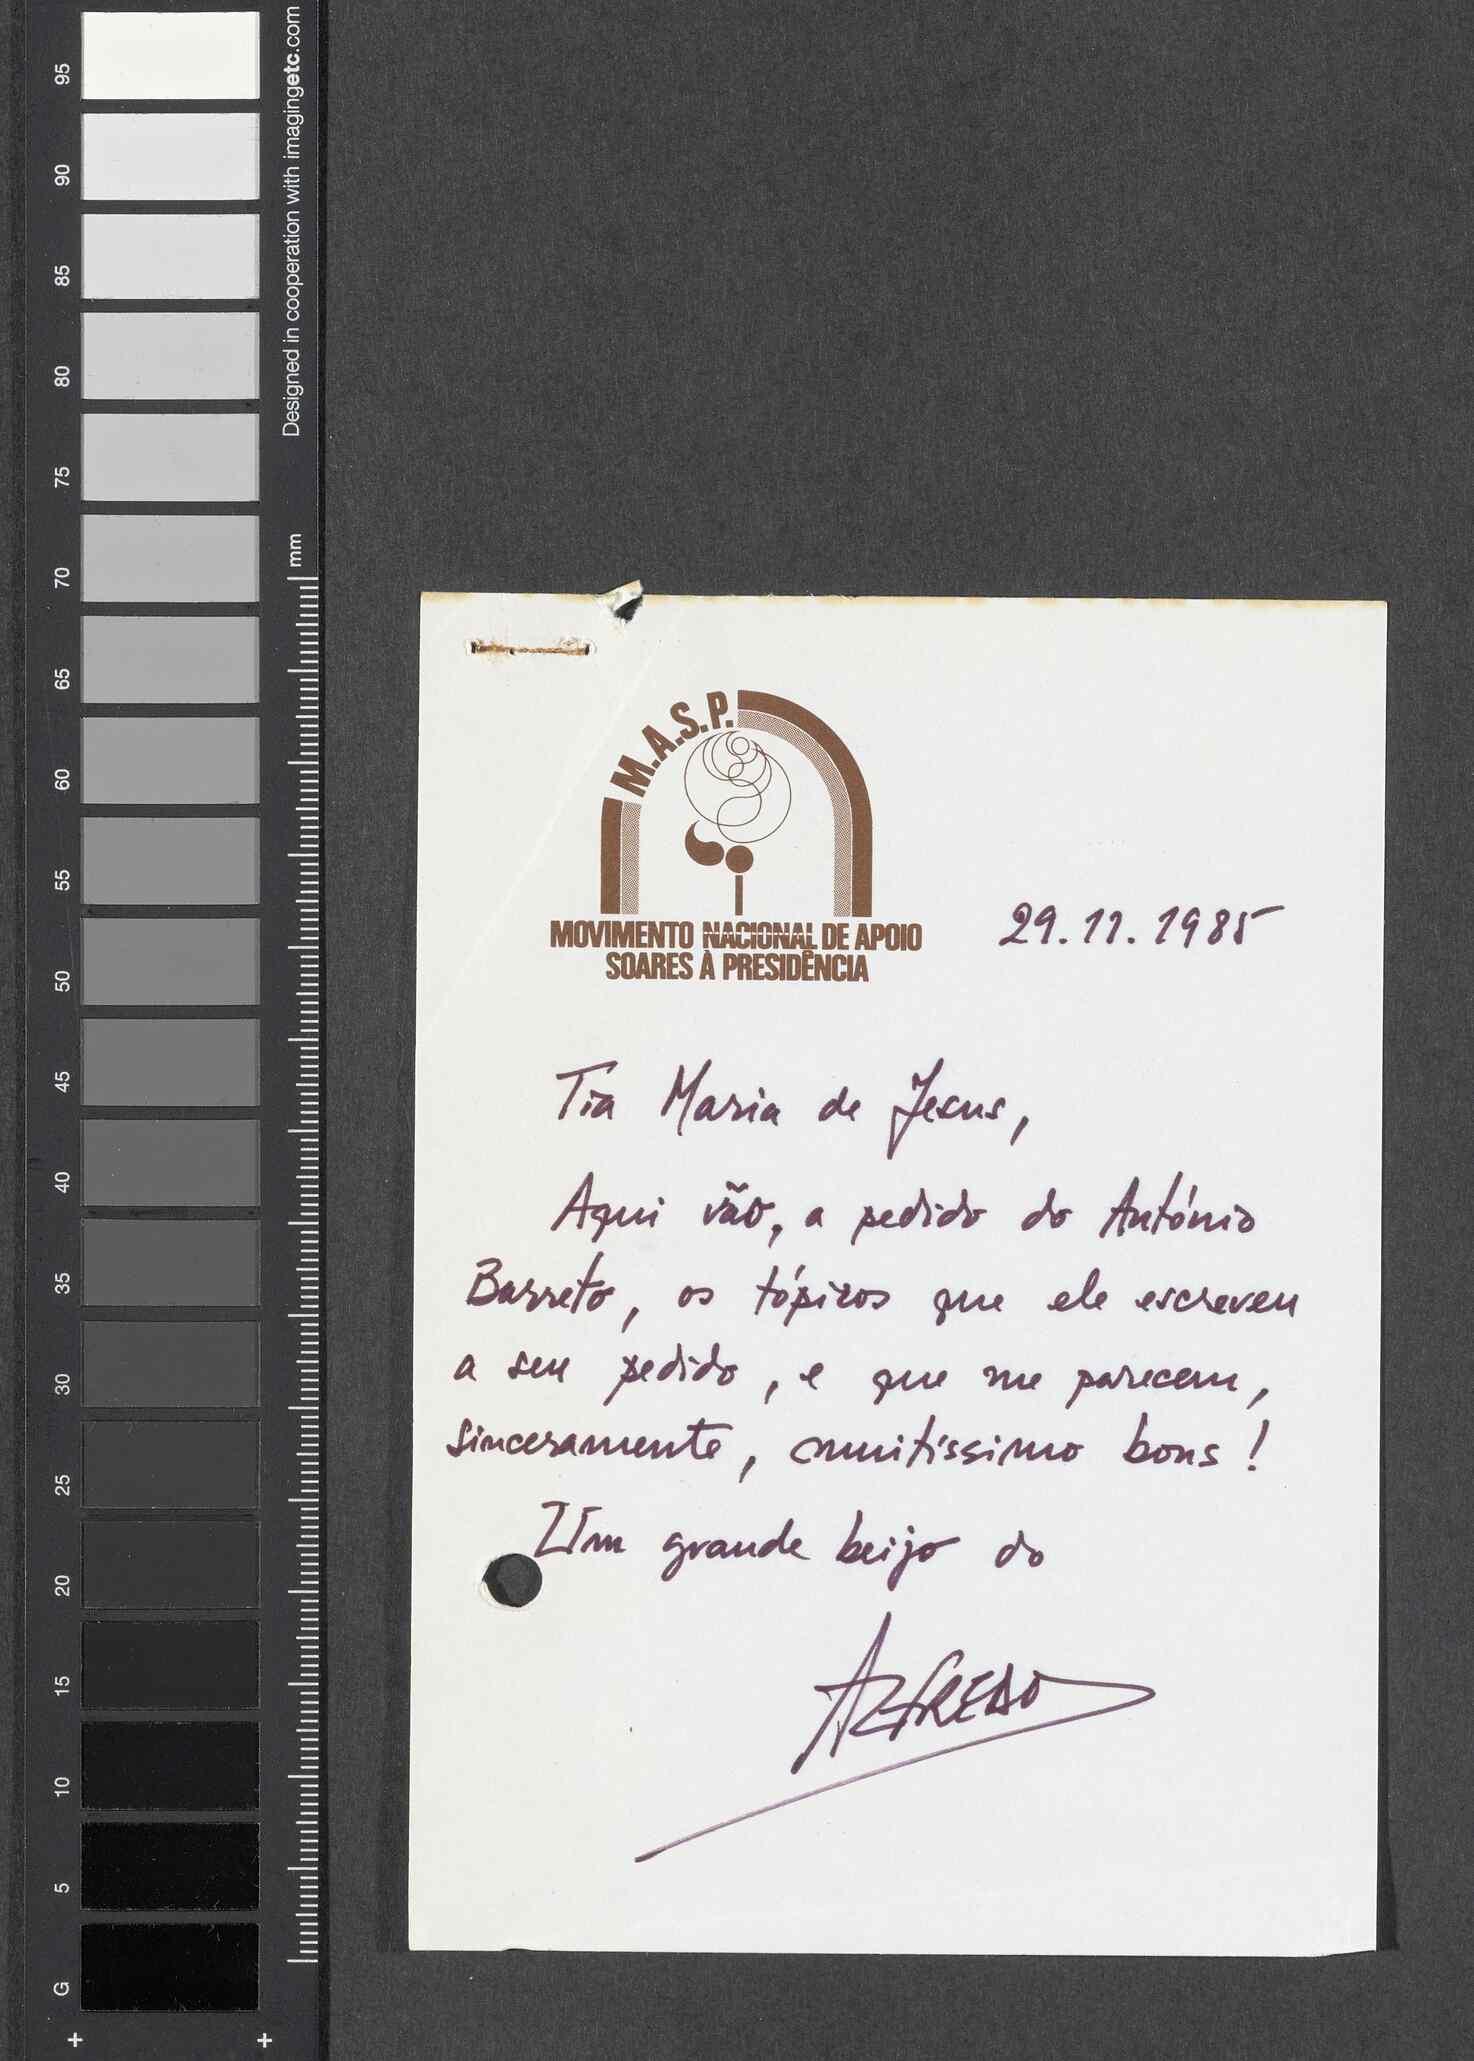 Designed in cooperation with imagingetc.com
mm
95
90
85
80
75
70
65
60
55
50
45
40
35
30
25
20
15
10
5
G
M.A.S.P.
MOVIMENTO NACIONAL DE APOIO
SOARES À PRESIDÊNCIA
29.11.1985
Tia Maria de Jesus,
Aqui vão, a pedido do António
Barreto, os tópicos que ele escreveu
a seu pedido, e que me parecem,
sinceramente, muitíssimo bons!
Um grande beijo do
ALFREDO